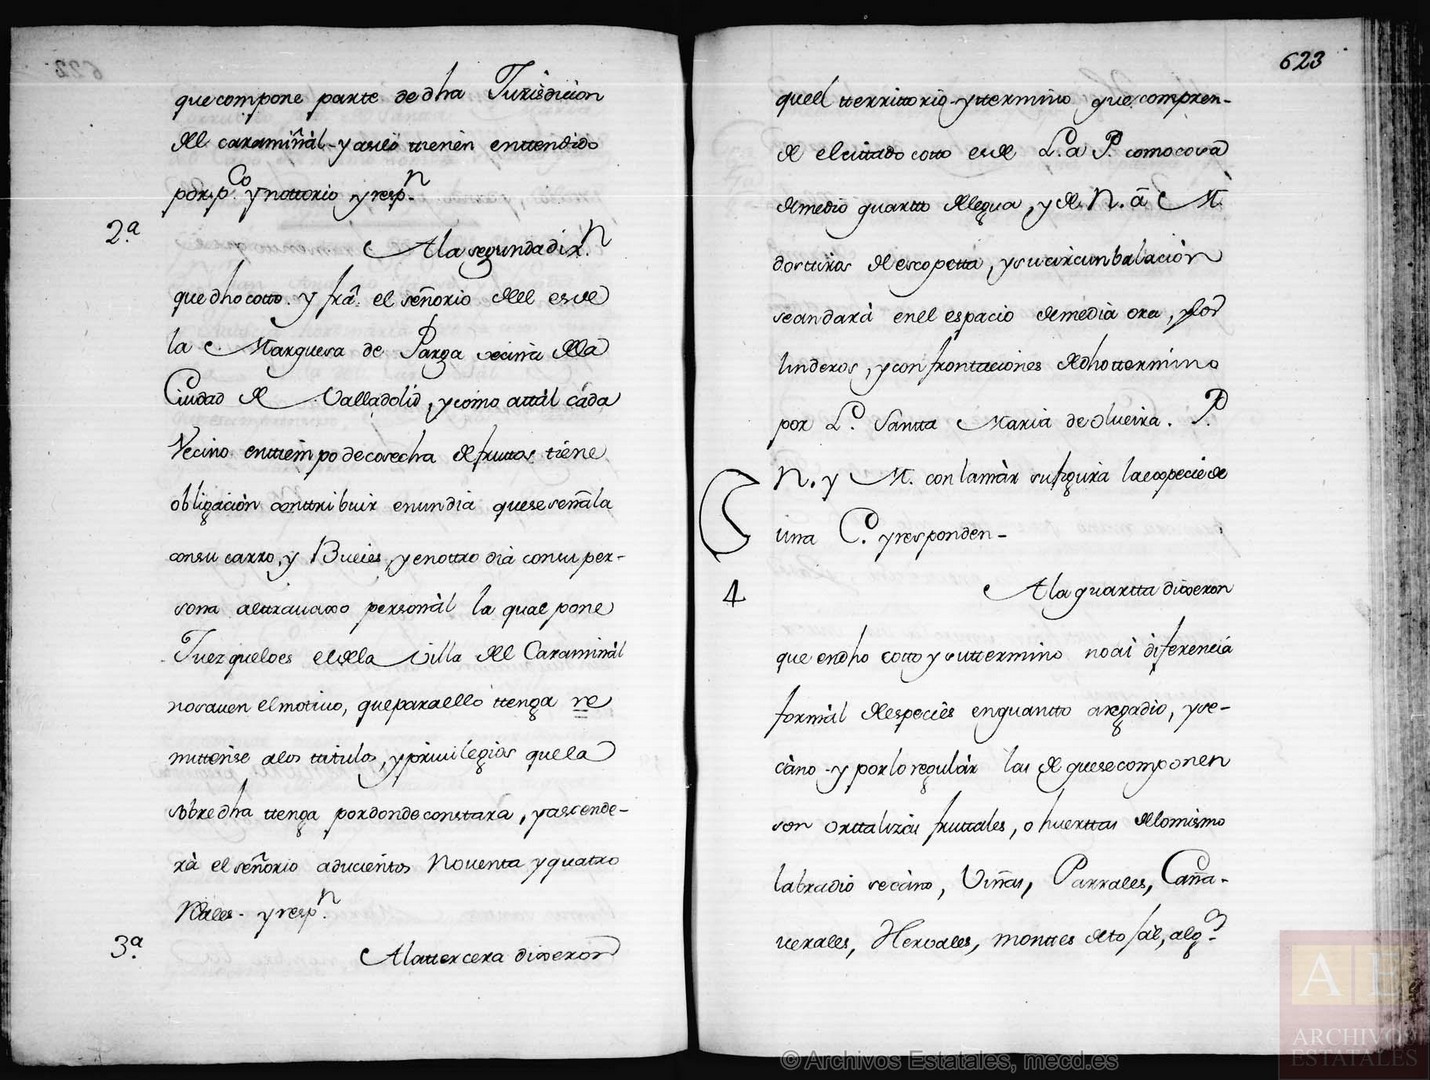 que compone parte de dha Jurisdicion
del caramiñàl y asilo ttienen enttendido
por p.co y nottorio y resp.n
2.a
A la segunda dix.n
que dho cotto. y frâ. el señorio del es de
la Marquesa de Parga vecina dela
Ciudad de Valladolid, y como attàl cáda
Vecino enttiempo de cosecha de fruttos tiéne
obligación conttribuir en un dia que se señala
con su carro, y Bueies, y en ottro dia con su per-
sona al travaxo personàl la qual pone
Juez que lo es el dela Villa del Caramiñàl
no saven el motivo, que para ello ttenga re
mittense alos titulos, y privilegios que la
sobre dha ttenga por donde constara, y ascende-
rà el señorio a ducientos Noventa y quatro
Rales. y resp.n
3.a
A la ttercera dixeron
623
que el tterritorio y ttermino que compren-
de el cittado cotto es de L.a P. como cosa
de medio quartto de legua, y de N. â M.
dos tiros de escopetta, y su circunbalación
se andarà en el espacio de media ora, y por
linderos, y confrontaciones de dho ttermino
por L. Santta Maria de Olveira. P.
N. y M. con la màr su figura la especie de
una C. y responden-
4
A la quartta dixeron
que en dho cotto y su ttermino no ai diferencia
formàl de especiès en quantto a regadio, y se-
càno y por lo regulàr las de que se componen
son orttalizas fruttales, o huerttas de lo mismo
labradio secàno, Viñas, Parrales, Caña-
verales, Hervales, monttes de tojàl, alg.
© Archivos Estatales, mecd.es
AE
ARCHIVOS
ESTATALES